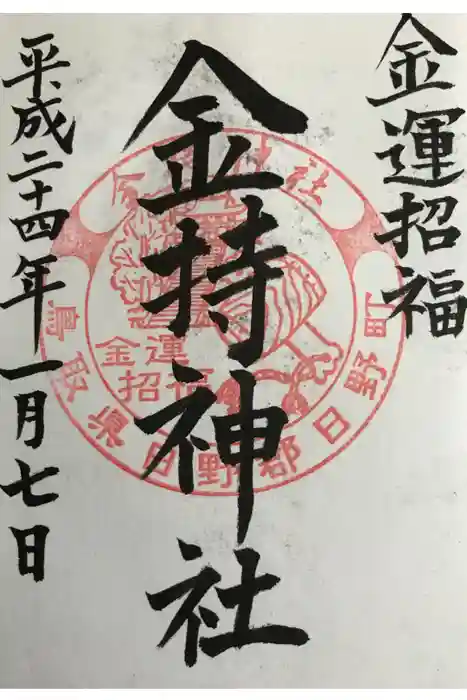 金運招福
金持神社
平成二十四年一月七日
金持神社
金運
招福
鳥取県日野郡日野町